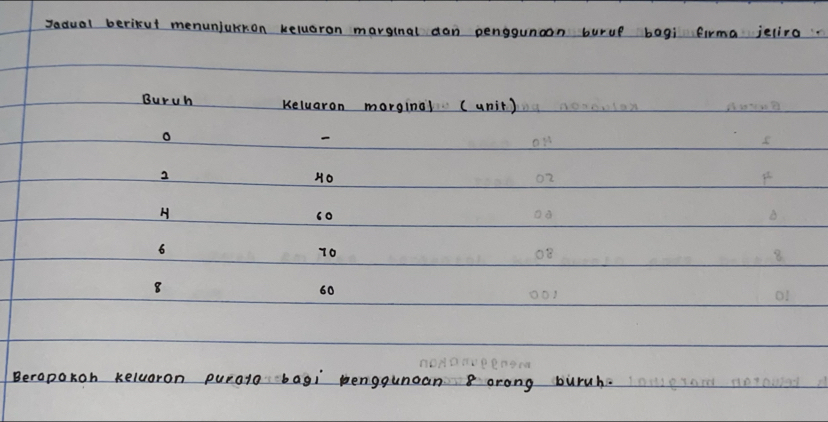 Jadual berikut menunjukkan keluaran marginal dan penggunaan buruh bagi firma jelira.
Buruh Keluaran marginal (unit)
0 -
2 40
4 60
6 70
8 60
Berapakah keluaran purata bagi penggunaan 8 orang buruh.